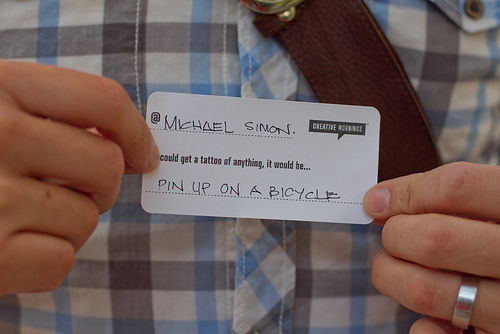 @ MICHAEL SIMON.
CREATIVE MORNINGS
could get a tattoo of anything, it would be...
PIN UP ON A BICYCLE